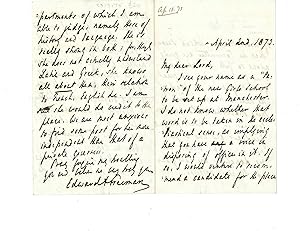 April 2nd, 1873.
My dear Lord,
I see your name as a "Pa-
tron" of the new Girls School
to be set up at Manchester.
I do not know whether that
word is to be taken in its eccle-
siastical sense, as implying
that you have any voice in
disposing of offices in it. If
so, I would venture to recom-
mend a candidate for a place
partments of which I am
able to judge, namely those of
history and language, she is
really strong in both; for though
she does not actually understand
Latin and Greek, she knows
all about them, their relation
to French, English &c. I am
sure she would do credit to the
place. We are most anxious
to find some post for her more
independent than that of a
private governess.
Pray forgive my troubling
you and believe me very truly yours
Edward A Freeman